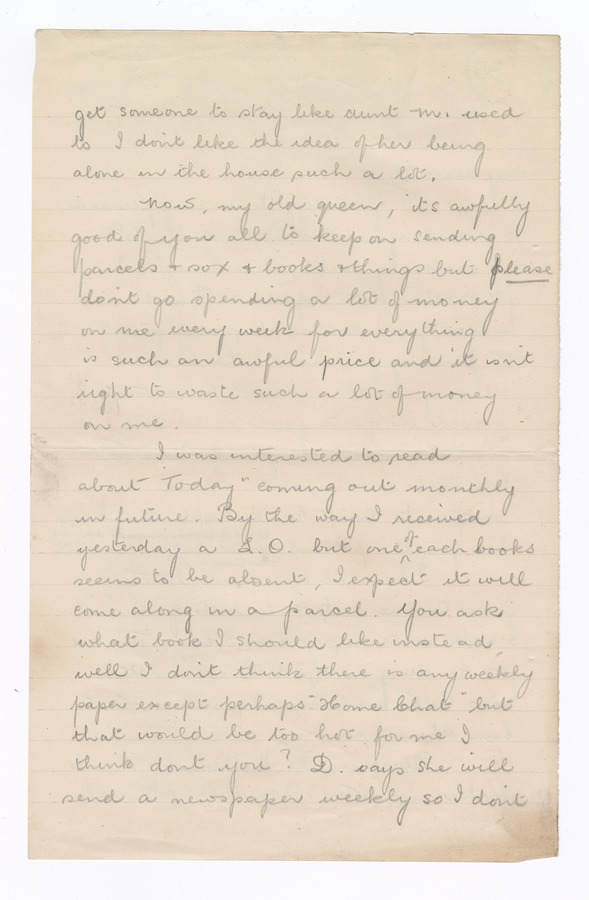 get someone to stay like aunt M. used
to I don't like the idea of her being
alone in the house such a lot.
Now, my old queen, it's awfully
good of you all to keep on sending
parcels + sox + books + things but please
don't go spending a lot of money
on me every week for everything
is such an awful price and it isn't
right to waste such a lot of money
on me.
I was interested to read
about "Today" coming out monthly
in future. By the way I received
yesterday a L.O. but one of each books
seems to be absent, I expect it will
come along in a parcel. You ask
what book I should like instead,
well I don't think there is any weekly
paper except perhaps "Home Chat" but
that would be too hot for me I
think don't you? D. says she will
send a newspaper weekly so I don't